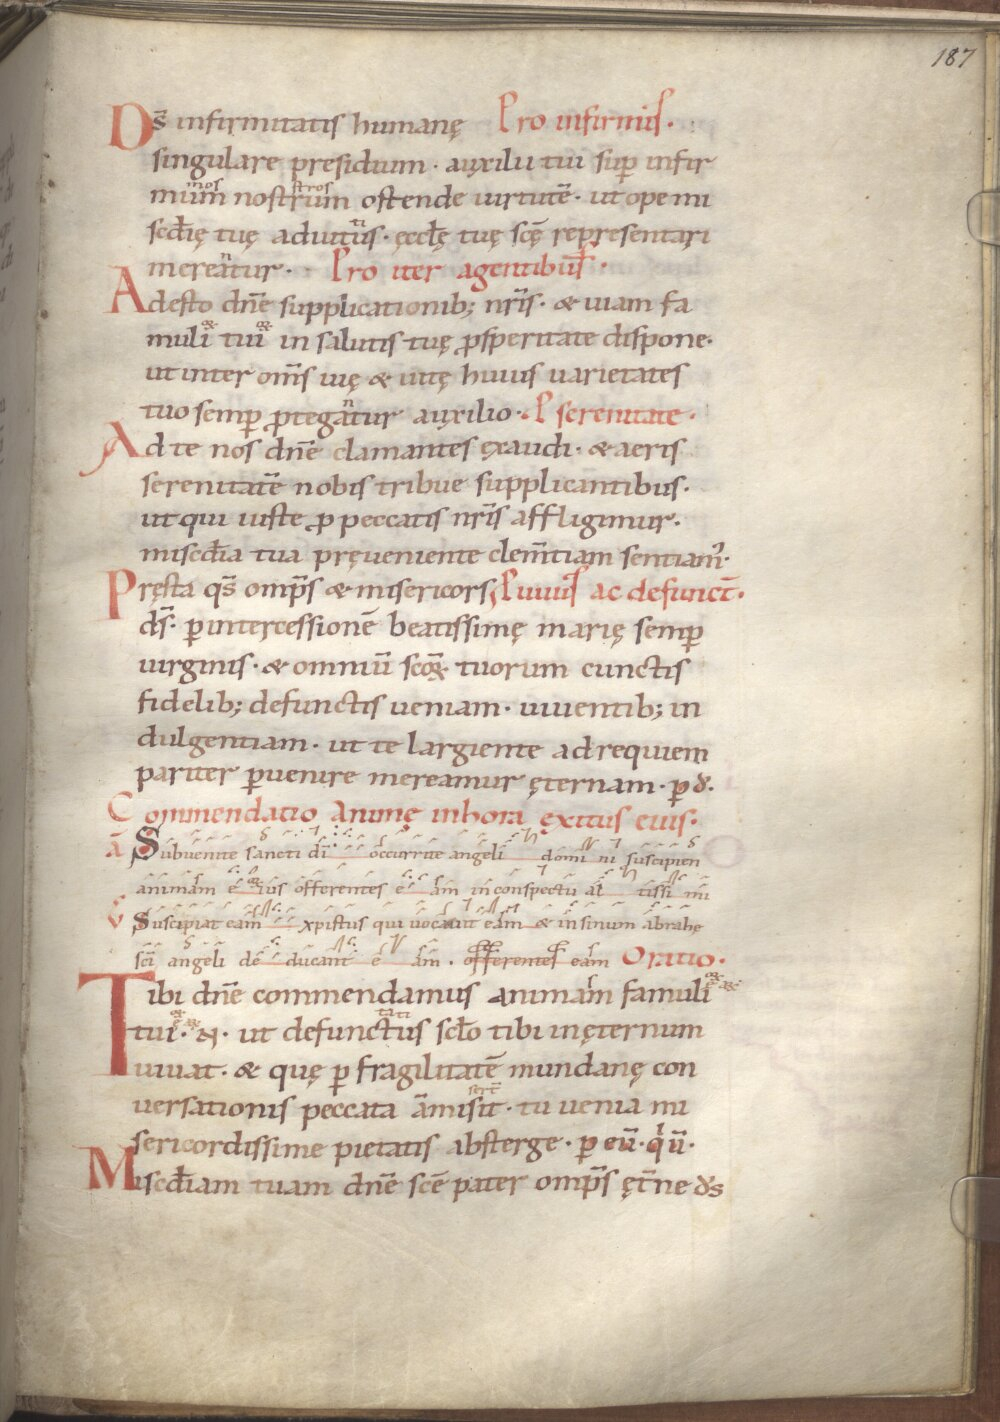 187
Ds̄ infirmitatis humanę Pro infirmis.
singulare presidium. auxilii tui sup̄ infir
mum nostrum ostende uirtutē. ut ope mi
scđię tuę adiutus. ęcclę tuę scę̄ representari
mereatur. Pro iter agentibus.
Adesto dn̄e supplicationib; nr̄is. & uiam fa
muli tui in salutis tuę ꝓsperitate dispone.
ut inter om̄s uię & uitę huius uarietates
tuo semp̄ ꝓtegatur auxilio. P serenitate.
Ad te nos dn̄e clamantes ęxaudi. & aeris
serenitatē nobis tribue supplicantibus.
ut qui iuste ꝓ peccatis nr̄is affligimur.
misc̄đia tua pręueniente clem̄tiam sentiam̄.
Pręsta qs̄ omp̄s & misericors P uiuis ac defunct̄.
ds̄. ꝑ intercessionē beatissimę marię semp̄
uirginis. & omniū scōꝝ tuorum cunctis
fidelib; defunctis ueniam. uiuentib; in
dulgentiam. ut te largiente ad requiem
pariter ꝑuenire mereamur ęternam. ꝑ d.
Commendatio Animę in hora ęxitus eius.
ā Subuenite sancti dī occurrite angeli domi ni suscipien
animam e ius offerentes e am in conspectu al tissi mi
V Suscipiat eam xpistus qui uocauit eam & in sinum abrahe
sc̄i angeli de ducant e am. offerentes eam Oratio.
Tibi dn̄e commendamus animam famuli
tui. N. ut defunctus sc̄lo tibi in ęternum
uiuat. & quę ꝑ fragilitatē mundanę con
uersationis peccata amisit. tu uenia mi
sericordissime pietatis absterge. ꝑ eū. q̄ū.
Misc̄điam tuam dn̄e sc̄e pater omp̄s ęt̄ne ds̄